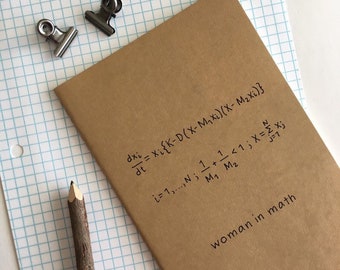 dxᵢ/dt = xᵢ{K-D(X-M₁xᵢ)(X-M₂xᵢ)}
i=1,...,N ; 1/M₁ + 1/M₂ < 1 ; X = Σⱼ₌₁ᴺ xⱼ
woman in math